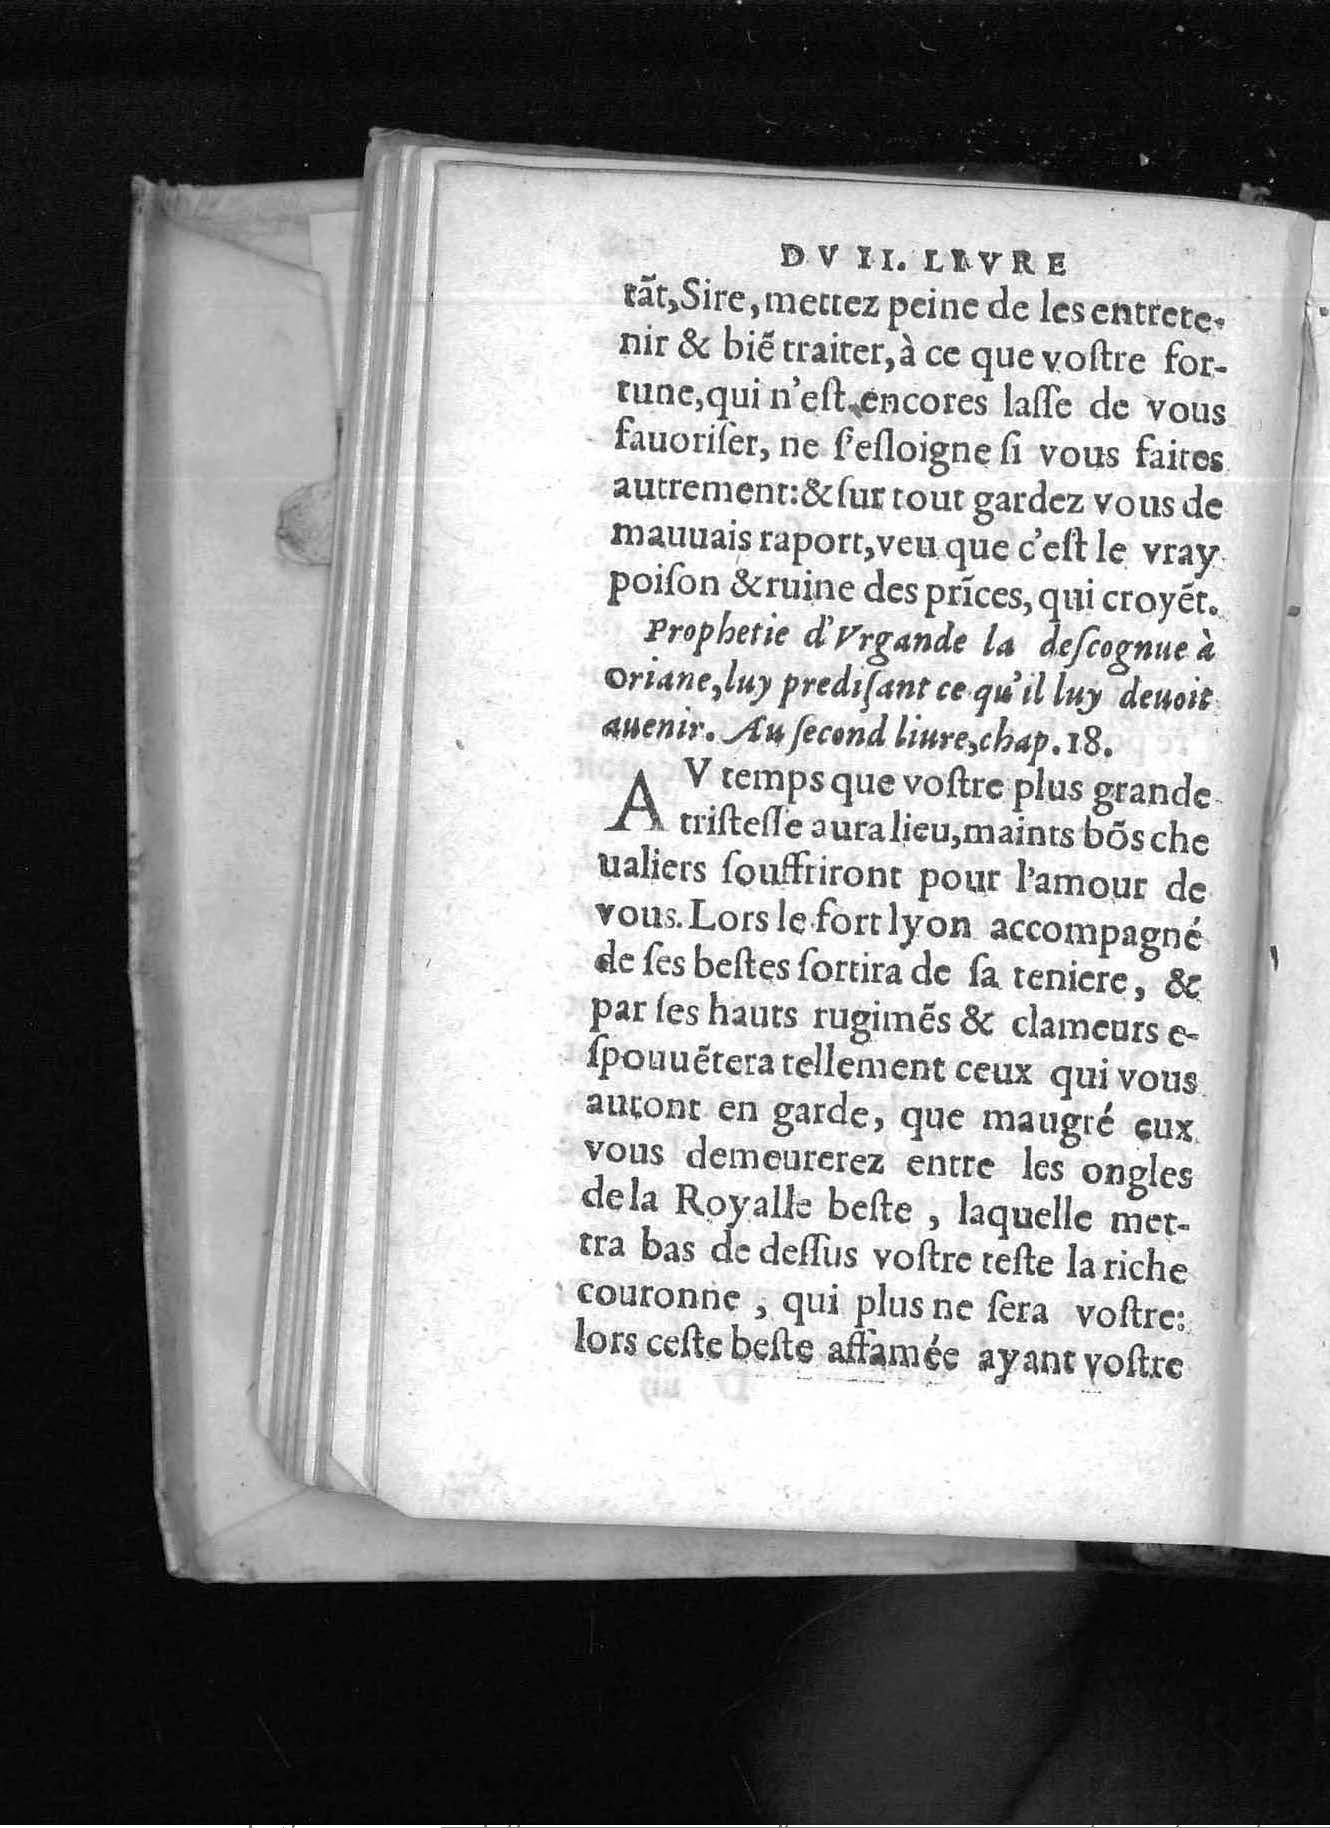 DV II. LIVRE
tãt, Sire, mettez peine de les entrete-
nir & biẽ traiter, à ce que voſtre for-
tune, qui n'eſt encores laſſe de vous
fauoriſer, ne ſ'eſloigne ſi vous faites
autrement: & ſur tout gardez vous de
mauuais raport, veu que c'eſt le vray
poiſon & ruine des prĩces, qui croyẽt.
Prophetie d'Vrgande la deſcognue à
Oriane, luy prediſant ce qu'il luy deuoit
auenir. Au ſecond liure, chap. 18.
AV temps que voſtre plus grande
triſteſſe aura lieu, maints bõs che
ualiers ſouffriront pour l'amour de
vous. Lors le fort lyon accompagné
de ſes beſtes ſortira de ſa teniere, &
par ſes hauts rugimẽs & clameurs e-
ſpouuẽtera tellement ceux qui vous
auront en garde, que maugré eux
vous demeurerez entre les ongles
de la Royalle beſte, laquelle met-
tra bas de deſſus voſtre teſte la riche
couronne, qui plus ne ſera voſtre:
lors ceſte beſte affamée ayant voſtre